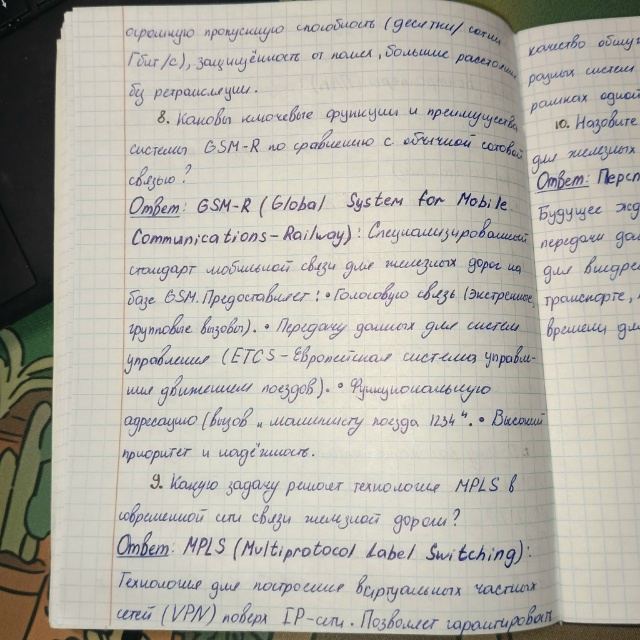 огромную пропускную способность (десятки/сотни
Гбит/с), защищённость от помех, большие расстояния
без ретрансляции.
8. Каковы ключевые функции и преимущества
системы GSM-R по сравнению с обычной сотовой
связью?
Ответ: GSM-R (Global System for Mobile
Communications-Railway): Специализированный
стандарт мобильной связи для железных дорог на
базе GSM. Предоставляет: • Голосовую связь (экстренные,
групповые вызовы). • Передачу данных для систем
управления (ETCS - Европейская система управле-
ния движением поездов). • Функциональную
адресацию (вызов "машинисту поезда 1234". • Высокий
приоритет и надёжность.
9. Какую задачу решает технология MPLS в
современной сети связи железной дороги?
Ответ: MPLS (Multiprotocol Label Switching):
Технология для построения виртуальных частных
сетей (VPN) поверх IP-сети. Позволяет гарантировать
качество обслу
разных систем
рамках одной
10. Назовите
для железных
Ответ: Персп
Будущее жд
передачи дан
для внедре
транспорте,
времени для